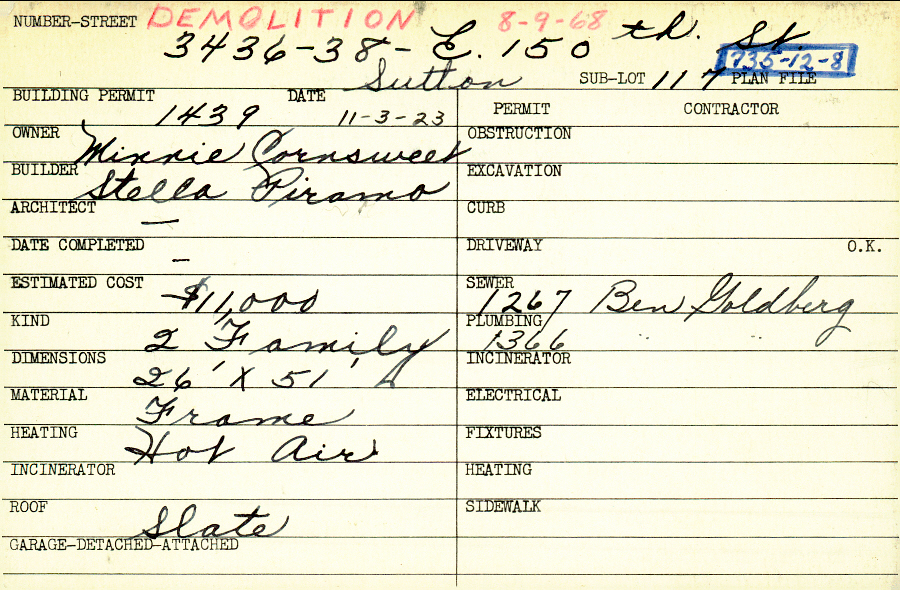 NUMBER-STREET DEMOLITION 8-9-68
3436-38- E. 150 th. St.
735-12-8
Sutton SUB-LOT 117 PLAN FILE
BUILDING PERMIT 1439 DATE 11-3-23
OWNER Minnie Cornsweet
BUILDER Stella Piramo
ARCHITECT —
DATE COMPLETED –
ESTIMATED COST $11,000
KIND 2 Family
DIMENSIONS 26' X 51'
MATERIAL Frame
HEATING Hot Air
INCINERATOR
ROOF Slate
GARAGE-DETACHED-ATTACHED
PERMIT CONTRACTOR
OBSTRUCTION
EXCAVATION
CURB
DRIVEWAY O.K.
SEWER 1267 Ben Goldberg
PLUMBING 1366 " "
INCINERATOR
ELECTRICAL
FIXTURES
HEATING
SIDEWALK